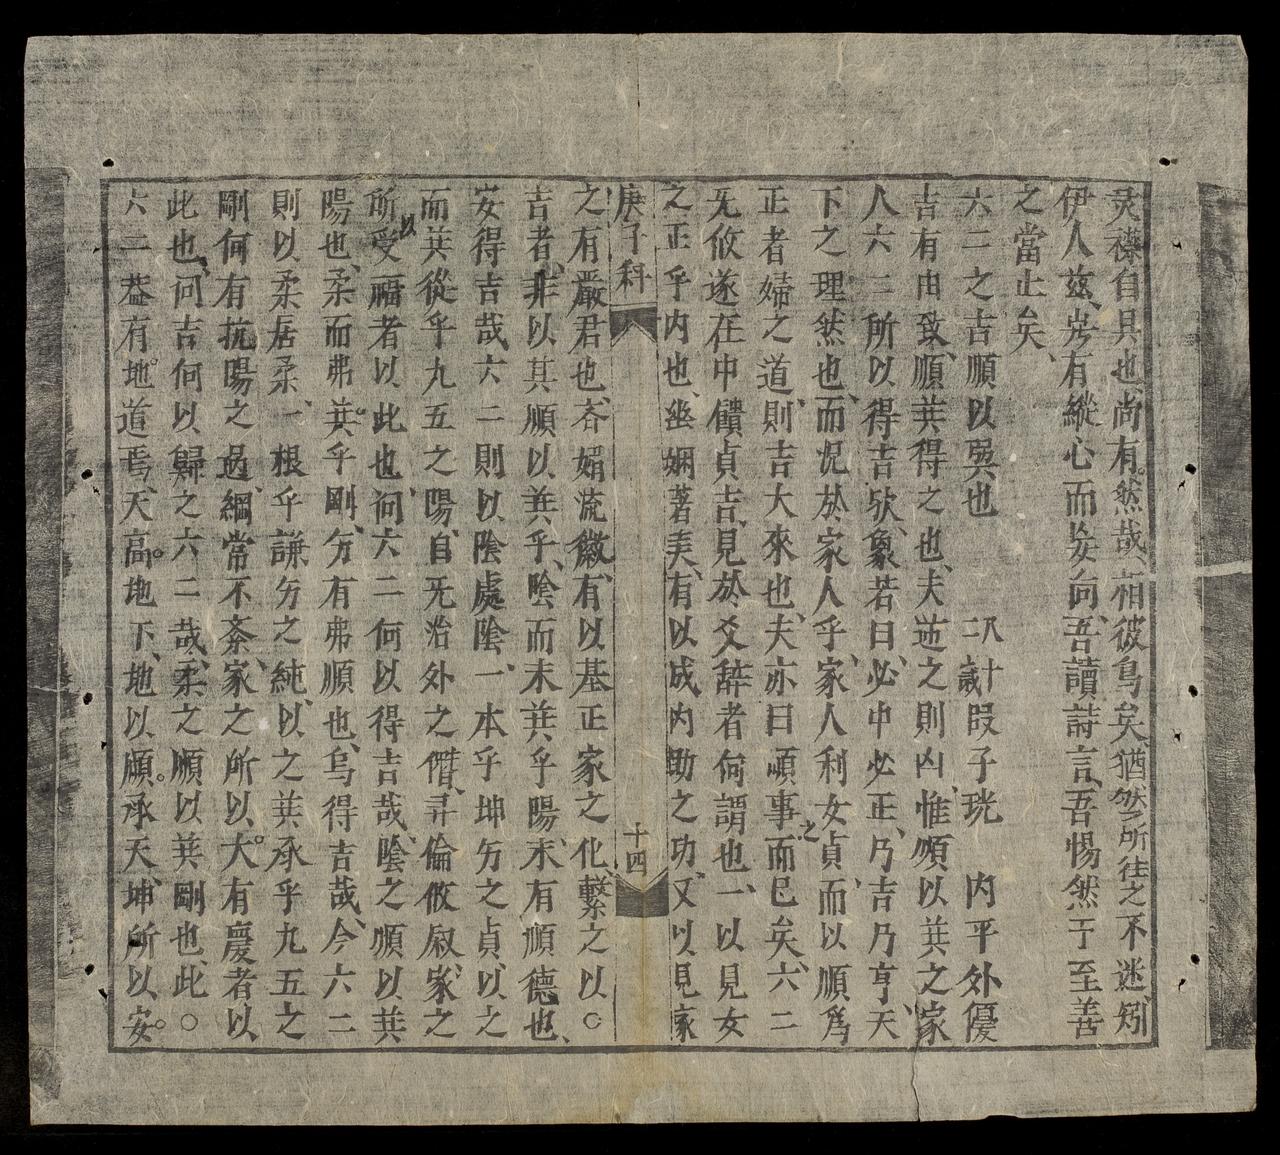 灵襟自具也、尚有。然哉、相彼鳥矣、猶然所往之不迷、矧
伊人兹、岁有縱心而妄向、吾讀詩言、吾惕然于至善
之當止矣、
六二之吉順以巽也 八十 二歲 叚子珖 内平外優
吉有由致、順英得之也、夫逆之則凶、惟順以英之家
人六二所以得吉欤、象若曰、必中必正、乃吉乃亨、天
下之理然也、而况於家人乎、家人利女貞、而以順爲
正者婦之道、則吉大來也、夫亦曰順事之而已矣、六二
无攸遂在中饋貞吉、見於爻辞者何謂也、一以見女
之正乎内也、幽嫻著美、有以成内助之功、又以見家
庚子科 十四
之有嚴君也、吝娟流徽、有以基正家之化、繫之以○
吉者、非以其順以英乎、陰而未英乎陽、未有順德也、
安得吉哉、六二則以陰處陰、一本乎坤方之貞、以之
而英從乎九五之陽、自无治外之僭、弄倫攸叙、家之
所以受福者以此也、何六二何以得吉哉、陰之順以英
陽也、柔而弗英乎剛、方有弗順也、烏得吉哉、今六二
則以柔居柔、一根乎謙方之純、以之英承乎九五之
剛何有抗陽之過、綱常不紊、家之所以大。有慶者以
此也、何吉何以歸之六二哉、柔之順以英剛也、此○
六二葢有。地道焉、天高。地下、地以順。承天、坤所以安。